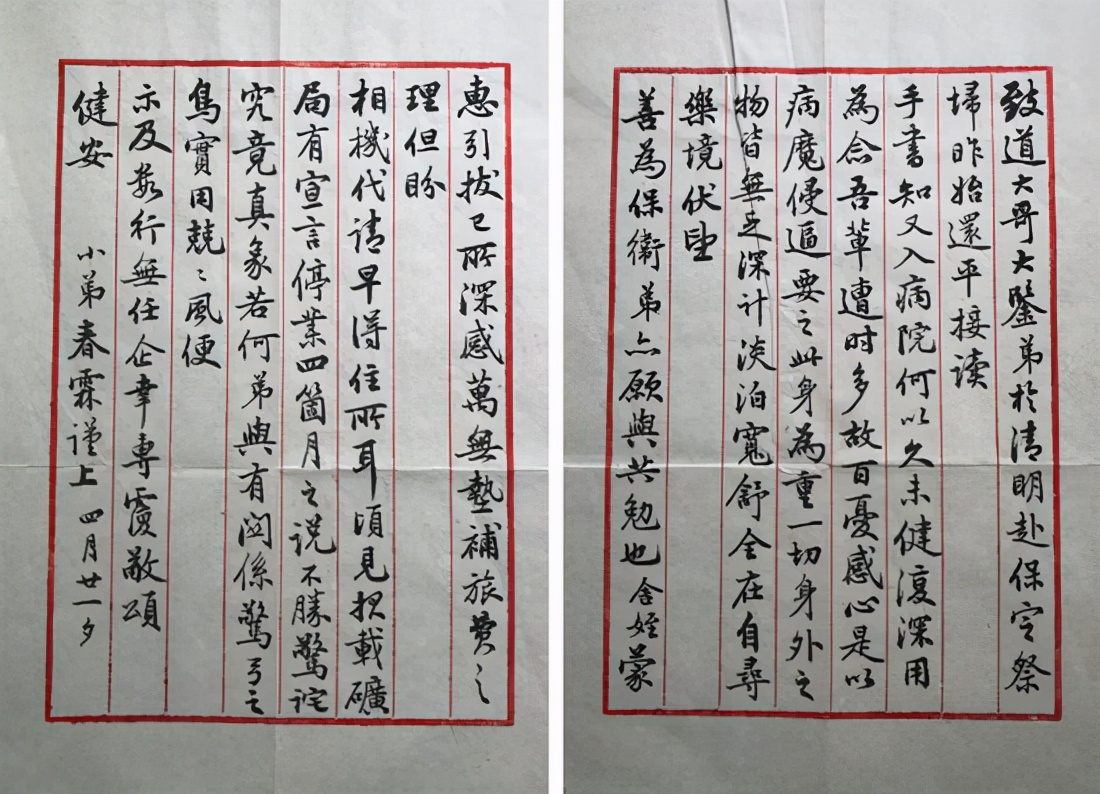 致道大哥大鑒弟於清明赴保定祭
埽昨始還平接读
手書知又入病院何以久未健復深用
為念吾輩遭时多故百憂感心是以
病魔侵逼要之此身為重一切身外之
物皆無足深计淡泊寬舒全在自尋
樂境伏望
善為保衛弟亦願與共勉也舍姪蒙
惠引拔已所深感萬無墊補旅费之
理但盼
相機代请早得住所耳頃見报載礦
局有宣言停業四箇月之说不勝驚诧
究竟真象若何弟與有関係驚弓之
鳥實用兢〻風便
示及数行無任企幸専瀆敬頌
健安 小弟春霖谨上 四月廿一夕